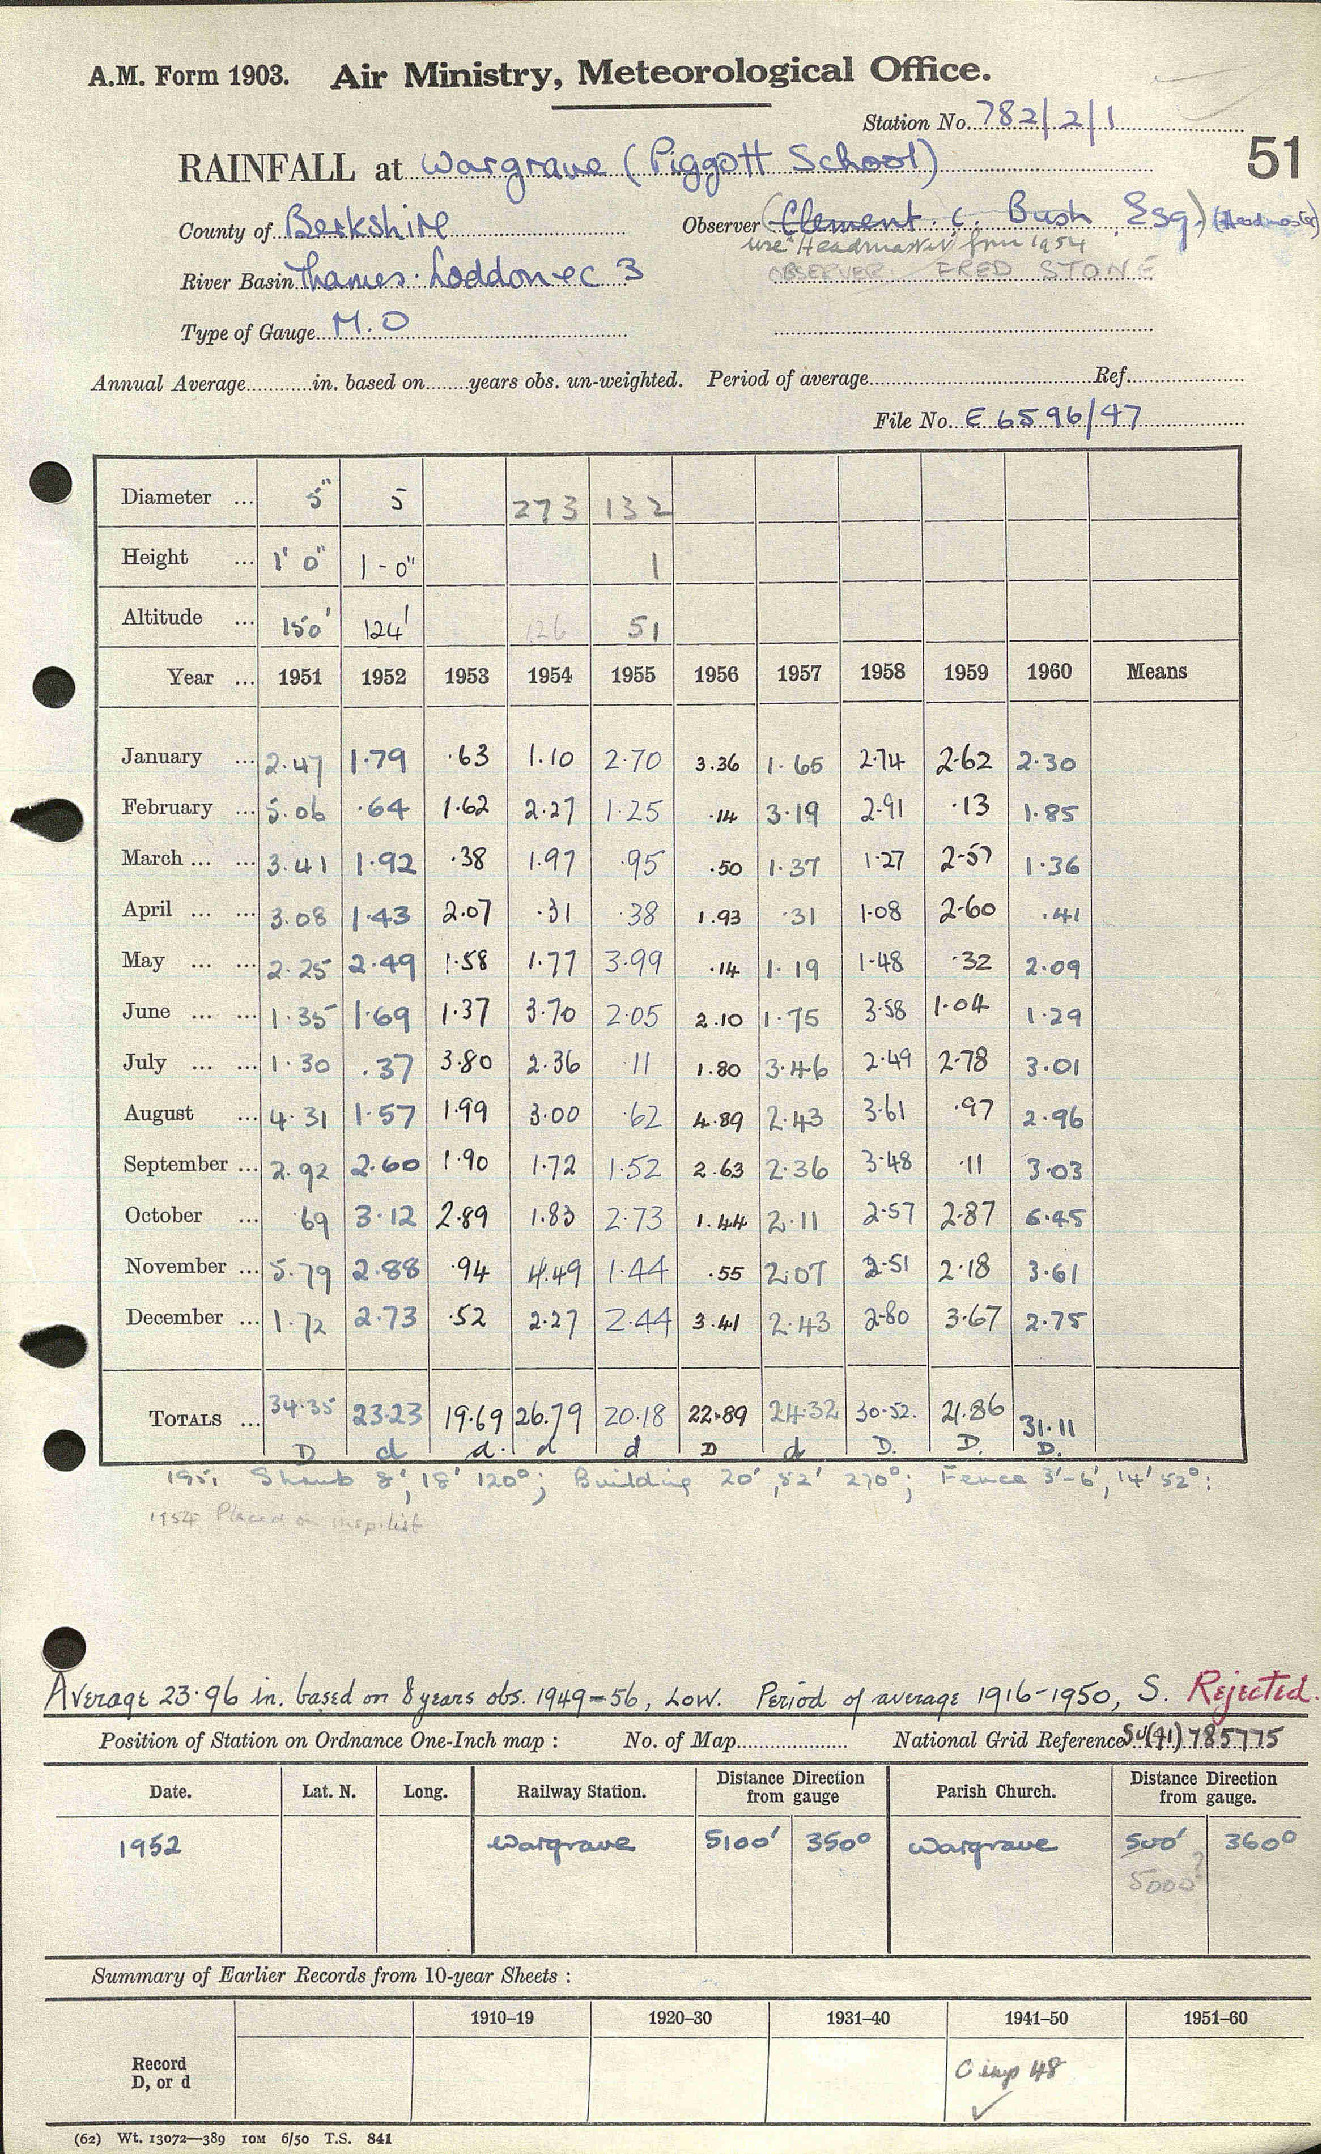 A.M. Form 1903. Air Ministry, Meteorological Office.
Station No. 782/2/1
51
RAINFALL at Wargrave (Piggott School)
County of Berkshire Observer (Clement. C. Bush, Esq.) (Headmaster)
use "Headmaster" from 1954
River Basin Thames: Loddon &c 3 OBSERVER FRED STONE
Type of Gauge M.O
Annual Average in. based on years obs. un-weighted. Period of average Ref.
File No. E 6596/47
Diameter ... 5" 5 273 132
Height ... 1' 0" 1-0" 1
Altitude ... 150' 124' 126 51
Year ... 1951 1952 1953 1954 1955 1956 1957 1958 1959 1960 Means
January ... 2.47 1.79 .63 1.10 2.70 3.36 1.65 2.74 2.62 2.30
February ... 5.06 .64 1.62 2.27 1.25 .14 3.19 2.91 .13 1.85
March ... ... 3.41 1.92 .38 1.97 .95 .50 1.37 1.27 2.57 1.36
April ... ... 3.08 1.43 2.07 .31 .38 1.93 .31 1.08 2.60 .41
May ... ... 2.25 2.49 1.58 1.77 3.99 .14 1.19 1.48 .32 2.09
June ... ... 1.35 1.69 1.37 3.70 2.05 2.10 1.75 3.58 1.04 1.29
July ... ... 1.30 .37 3.80 2.36 .11 1.80 3.46 2.49 2.78 3.01
August ... 4.31 1.57 1.99 3.00 .62 4.89 2.43 3.61 .97 2.96
September ... 2.92 2.60 1.90 1.72 1.52 2.63 2.36 3.48 .11 3.03
October ... .69 3.12 2.89 1.83 2.73 1.44 2.11 2.57 2.87 6.45
November ... 5.79 2.88 .94 4.49 1.44 .55 2.07 2.51 2.18 3.61
December ... 1.72 2.73 .52 2.27 2.44 3.41 2.43 2.80 3.67 2.75
TOTALS ... 34.35 23.23 19.69 26.79 20.18 22.89 24.32 30.52. 21.86 31.11
D d d. d d D d D. D. D.
1951 Shrub 8', 18' 120°; Building 20', 52' 270°; Fence 3'-6', 14' 52°;
1954 Placed on insp. list
Average 23.96 in. based on 8 years obs. 1949-56, Low. Period of average 1916-1950, S. Rejected.
Position of Station on Ordnance One-Inch map : No. of Map National Grid Reference SU(41) 785775
Date. Lat. N. Long. Railway Station. Distance Direction from gauge Parish Church. Distance Direction from gauge.
1952 Wargrave 5100' 350° Wargrave 500' 360°
5000'?
Summary of Earlier Records from 10-year Sheets :
1910-19 1920-30 1931-40 1941-50 1951-60
Record
D, or d
C inp 48
(62) Wt. 13072—389 10M 6/50 T.S. 841